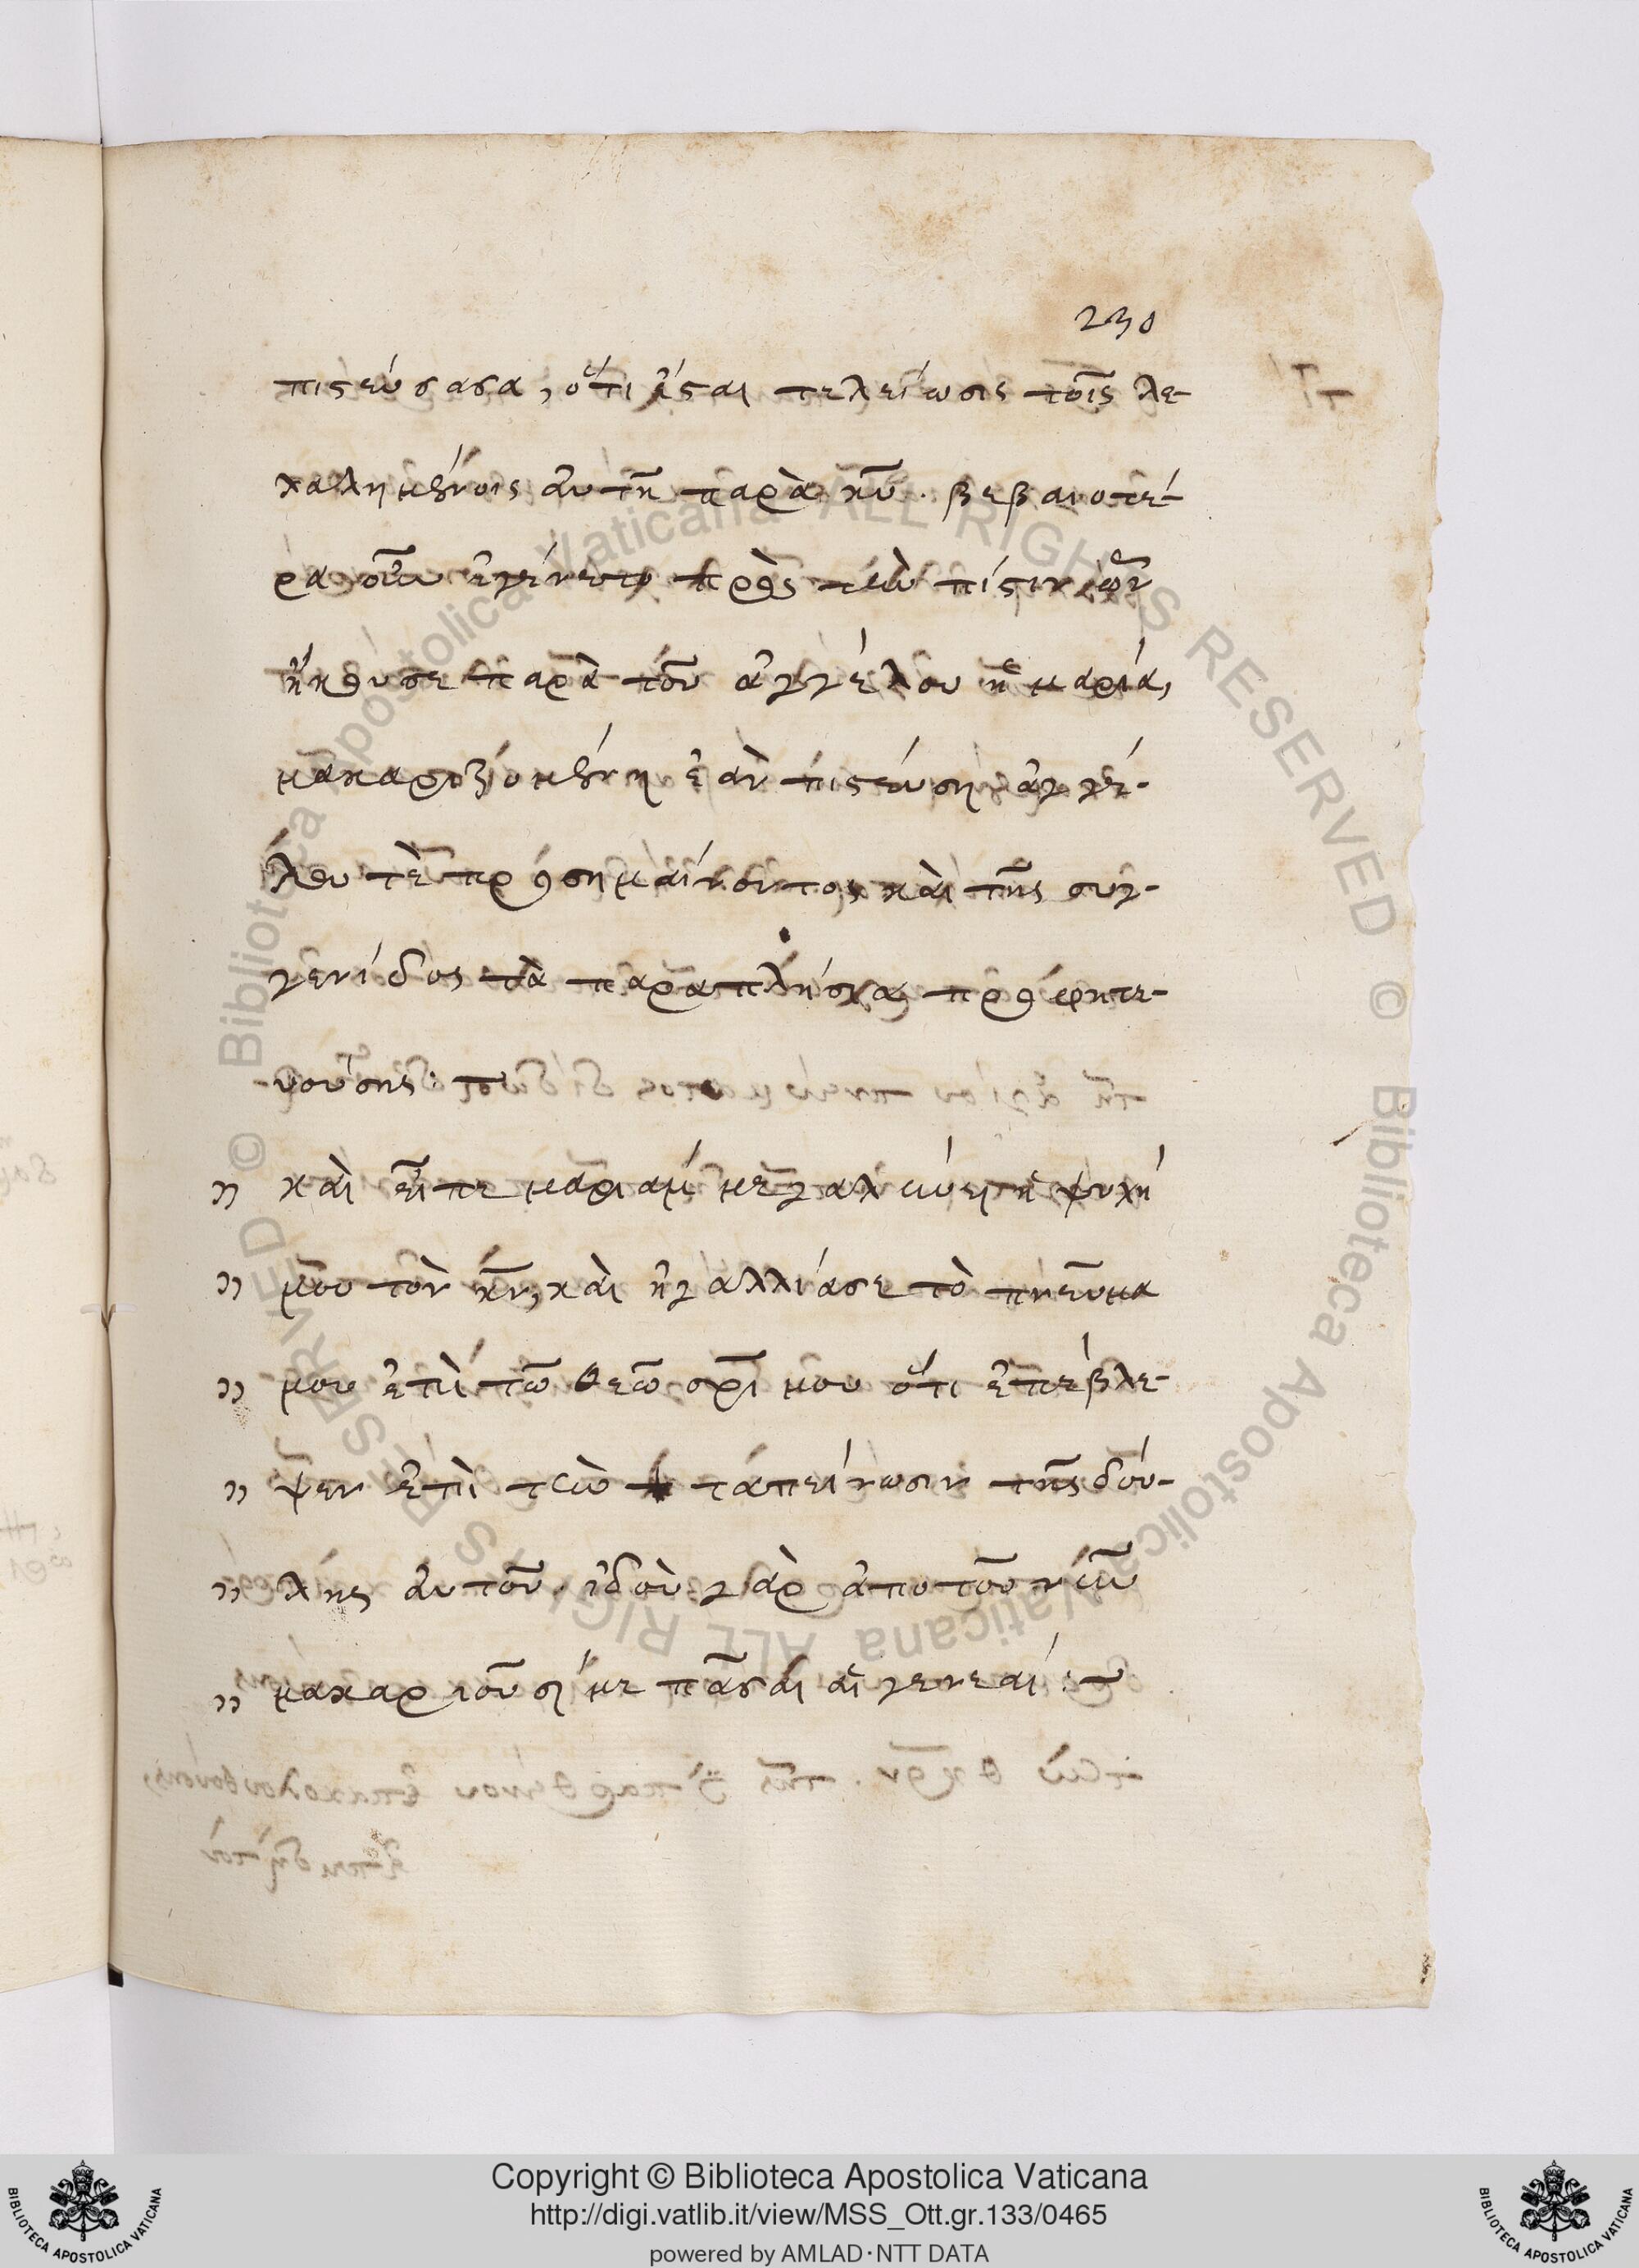 230
πιστεύσασα, ὅτι ἔσται τελείωσις τοῖς λε-
λαλημένοις αὐτῆ παρὰ κυ̅. βεβαιοτέ-
ρα οὖν ἐγένετο πρὸς τὴν πίστιν, ὧν
ἤκουσε παρὰ τοῦ ἀγγέλου ἡ μαρία,
μακαριζομένη ἐὰν πιστεύση ἀγγέ-
λου τὲ προσημαίνοντος καὶ τῆς συγ-
γενίδος τὰ παραπλήσια προφητε-
υούσης:
" καὶ εἶπε μαριάμ μεγαλύνει ἡ ψυχή
" μου τὸν κν̅, καὶ ἠγαλλίασε τὸ πνεῦμα
" μου ἐπὶ τῶ θεῶ σρ̅ι μου ὅτι ἐπέβλε-
" ψεν ἐπὶ τὴν ταπείνωσιν τῆς δού-
" λης αὐτοῦ. ἰδοὺ γὰρ ἀπο τοῦ νῦν
" μακαριοῦσί με πᾶσαι αἱ γενεαί:
Copyright © Biblioteca Apostolica Vaticana
http://digi.vatlib.it/view/MSS_Ott.gr.133/0465
powered by AMLAD·NTT DATA
BIBLIOTECA APOSTOLICA VATICANA
BIBLIOTECA APOSTOLICA VATICANA
© Biblioteca Apostolica Vaticana ALL RIGHTS RESERVED © Biblioteca Apostolica Vaticana ALL RIGHTS RESERVED